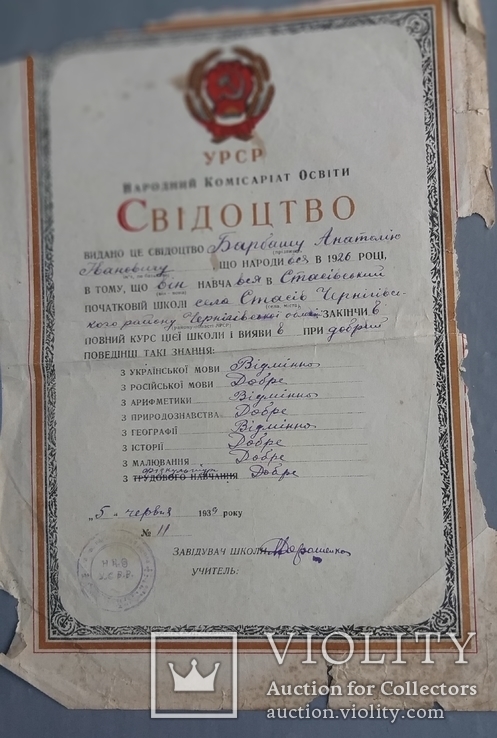 УРСР
НАРОДНИЙ КОМІСАРІАТ ОСВІТИ
СВІДОЦТВО
ВИДАНО ЦЕ СВІДОЦТВО Барбашу Анатолію
Івановичу ЩО НАРОДИВСЯ В 1926 РОЦІ,
В ТОМУ, ЩО він НАВЧАВСЯ В Стасівський
ПОЧАТКОВІЙ ШКОЛІ села Стасів Чернігівс-
кого району Чернігівської обл. ЗАКІНЧИВ
ПОВНИЙ КУРС ЦІЄЇ ШКОЛИ І ВИЯВИВ ПРИ добрий
ПОВЕДІНЦІ ТАКІ ЗНАННЯ:
З УКРАЇНСЬКОЇ МОВИ Відмінно
З РОСІЙСЬКОЇ МОВИ Добре
З АРИФМЕТИКИ Відмінно
З ПРИРОДОЗНАВСТВА Добре
З ГЕОГРАФІЇ Відмінно
З ІСТОРІЇ Добре
З МАЛЮВАННЯ Добре
фізкультури
З ТРУДОВОГО НАВЧАННЯ Добре
„5" червня 1939 року
№ 11
ЗАВІДУВАЧ ШКОЛИ Дорошенко
УЧИТЕЛЬ:
Н К О
У.С.Р.Р.
VIOLITY
Auction for Collectors
auction.violity.com